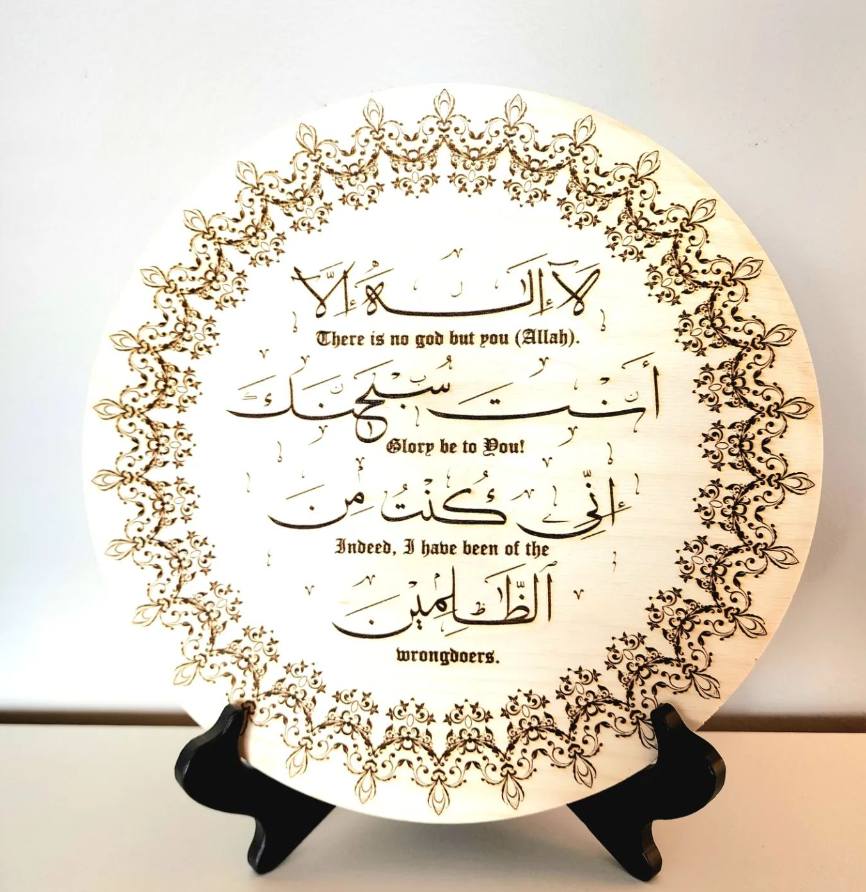 لَآ إِلَٰهَ إِلَّآ
There is no god but you (Allah).
أَنتَ سُبْحَٰنَكَ
Glory be to You!
إِنِّى كُنتُ مِنَ
Indeed, I have been of the
ٱلظَّٰلِمِينَ
wrongdoers.